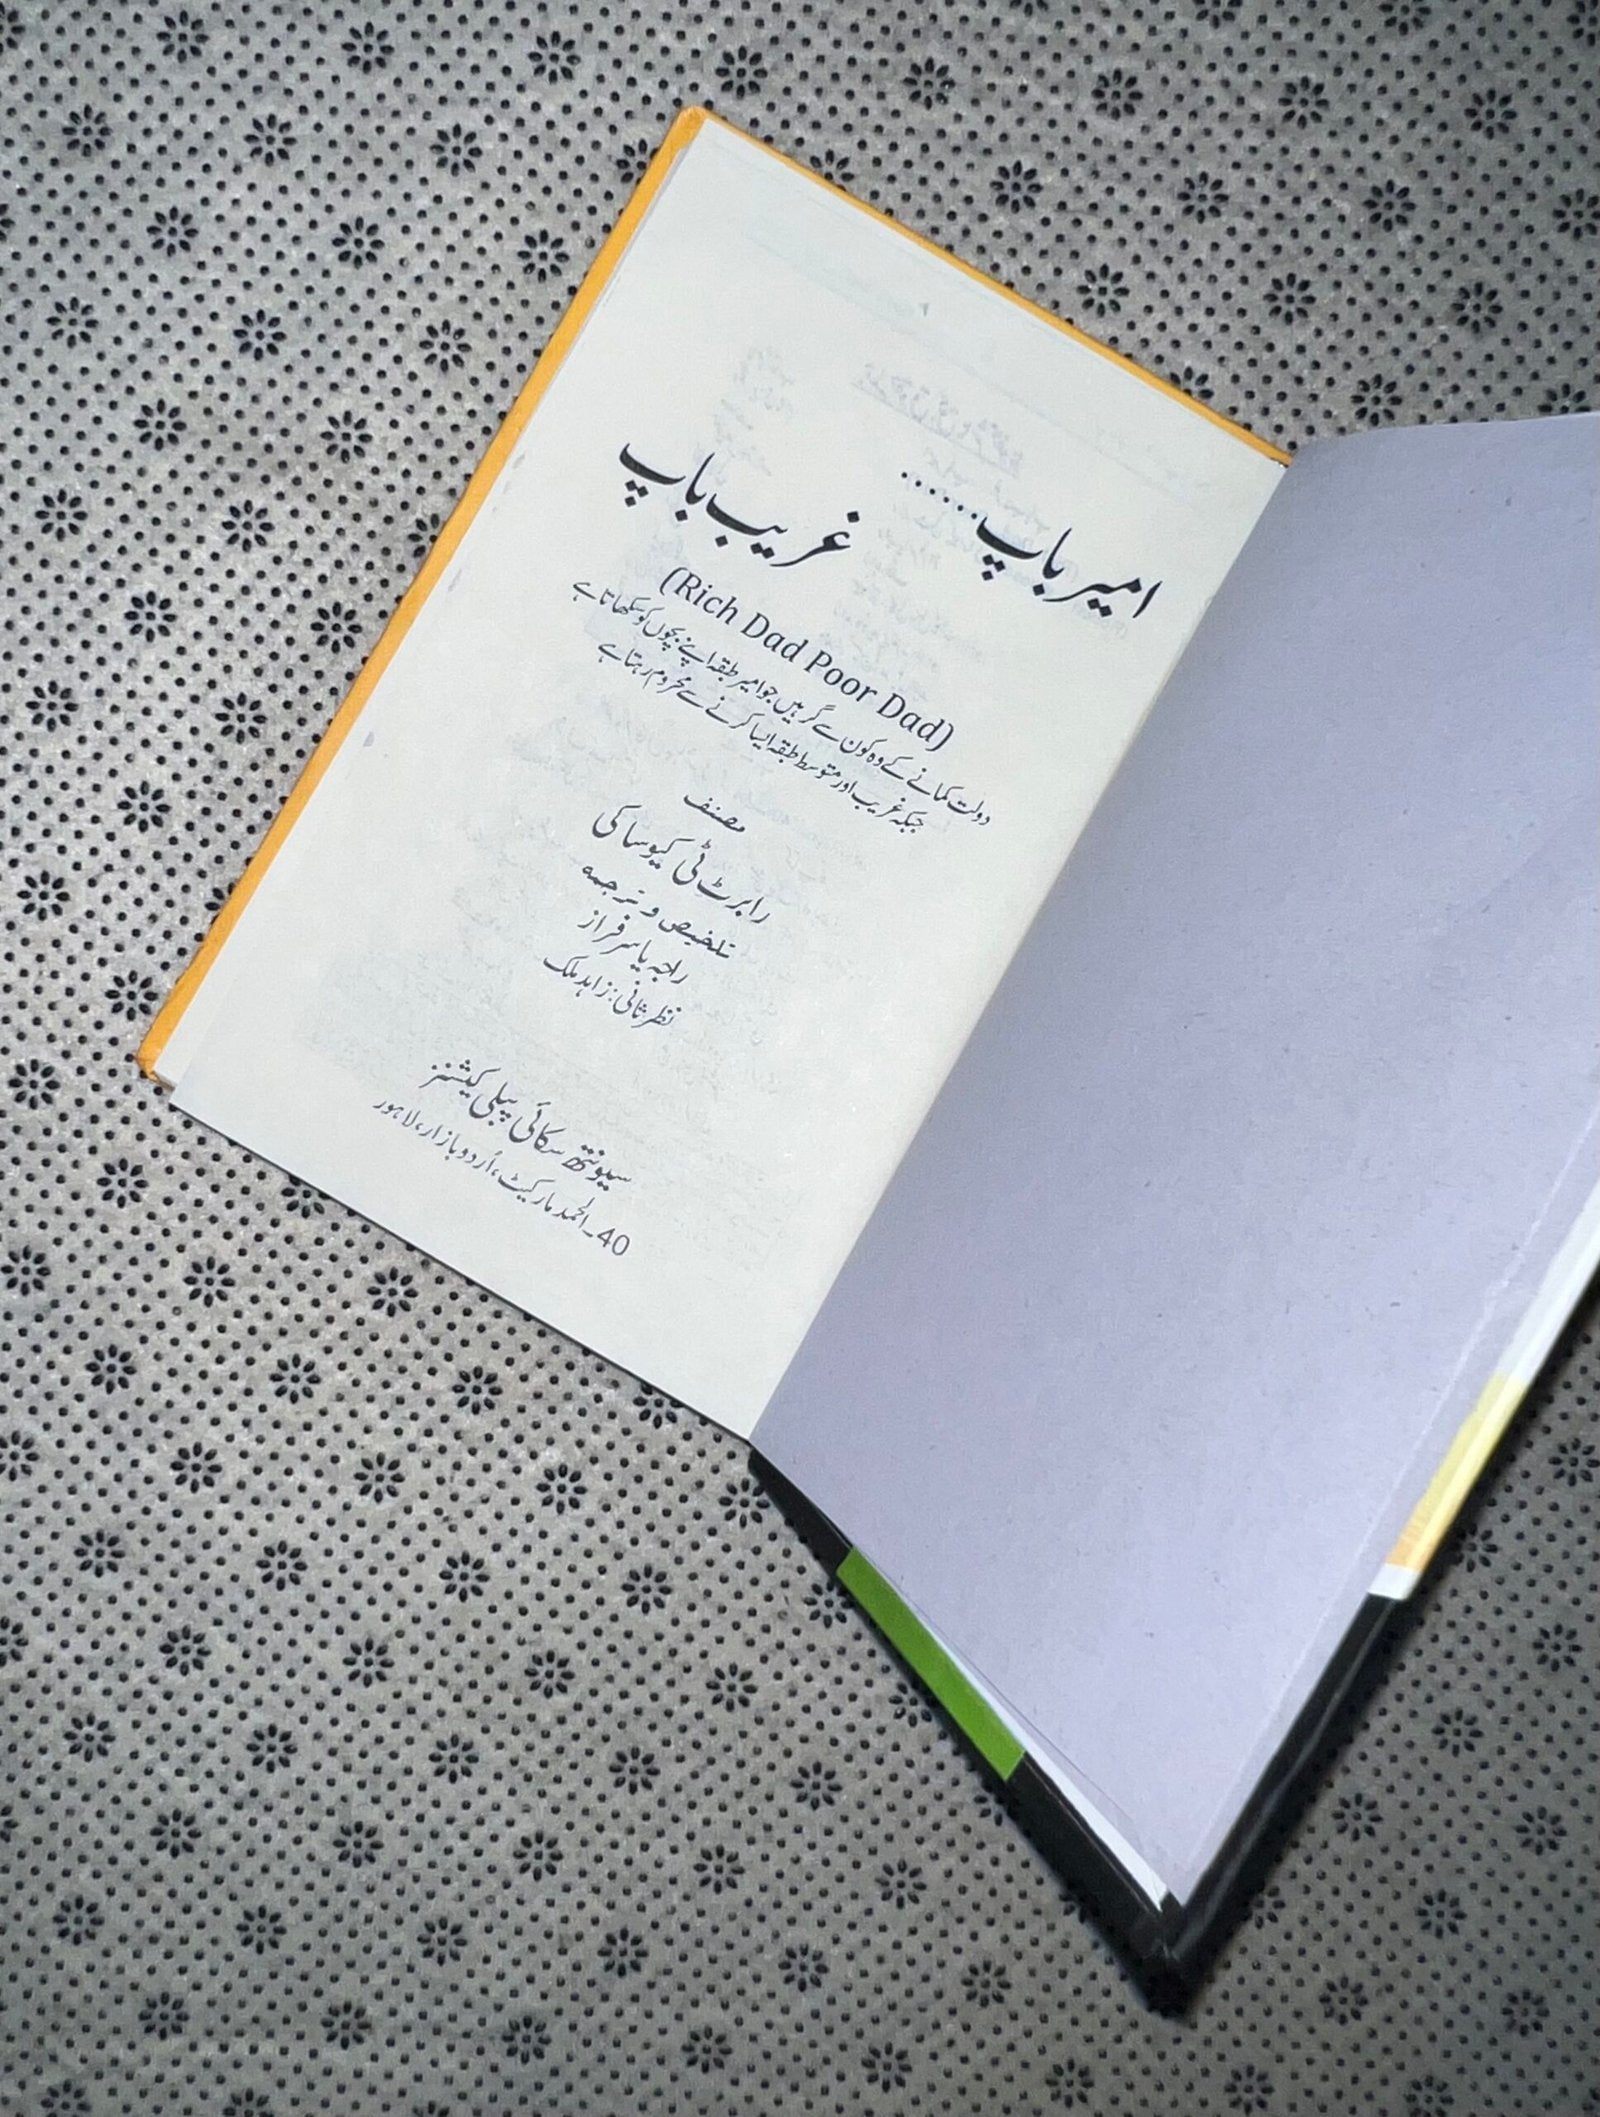 امیر باپ...... غریب باپ
(Rich Dad Poor Dad)
دولت کمانے کے وہ کون سے گر ہیں جو امیر طبقہ اپنے بچوں کو سکھاتا ہے
جبکہ غریب اور متوسط طبقہ ایسا کرنے سے محروم رہتا ہے
مصنف
رابرٹ ٹی کیوساکی
تلخیص و ترجمہ
راجہ یاسر فراز
نظر ثانی: زاہد ملک
سیونتھ سکائی پبلی کیشنز
40۔الحمد مارکیٹ، اُردو بازار، لاہور